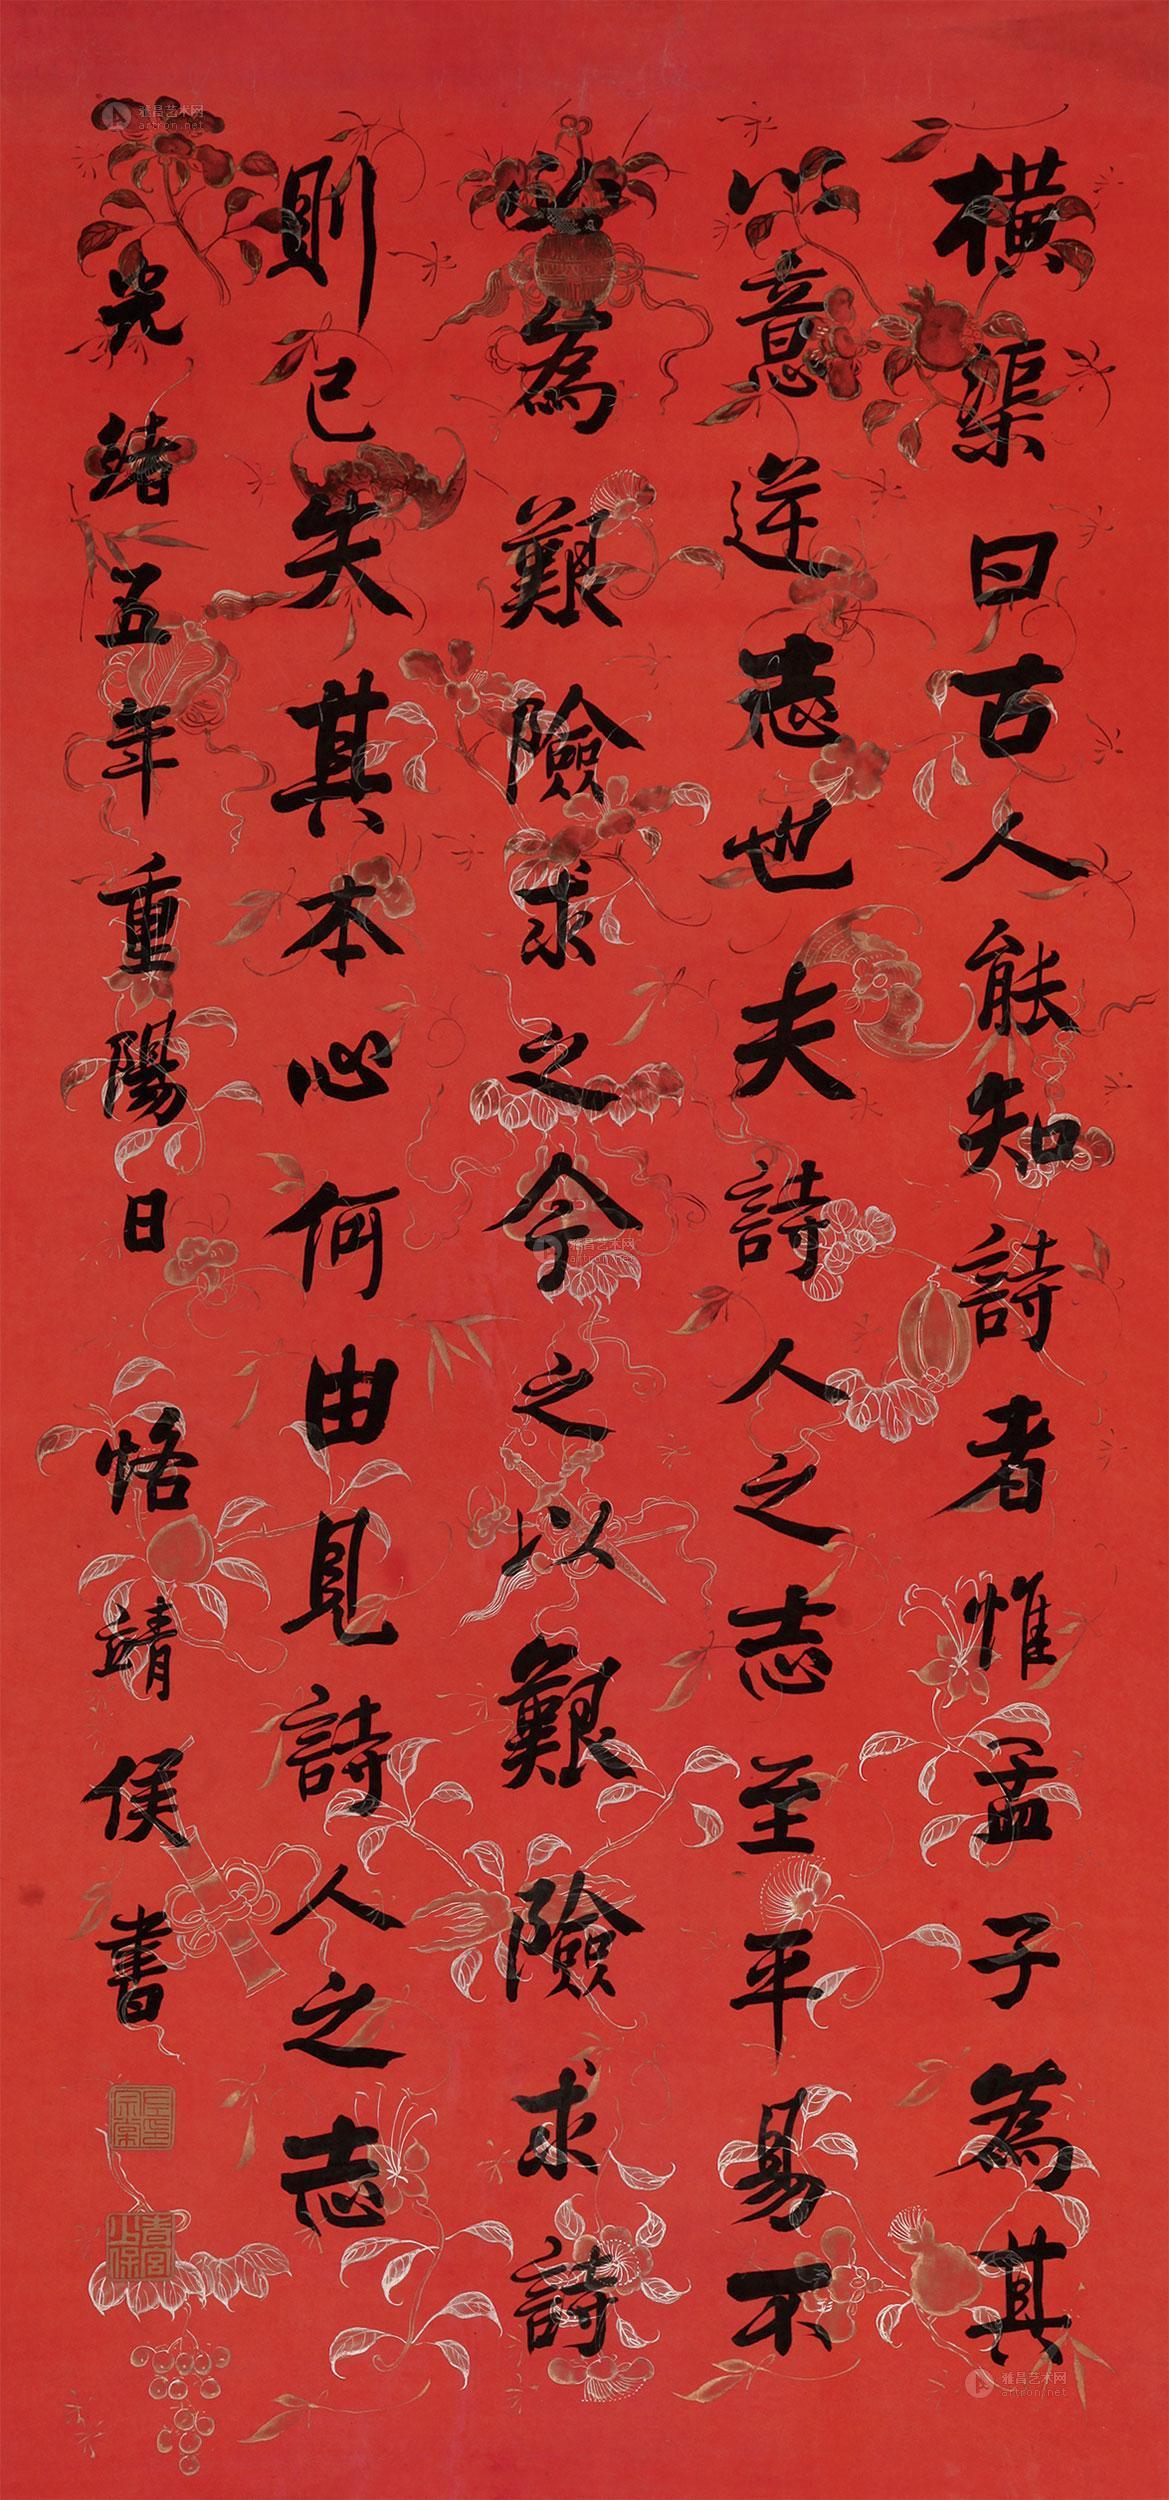 橫渠曰古人能知詩者惟孟子為其
以意逆志也夫詩人之志至平易不
必為艱險求之今之以艱險求詩
則已失其本心何由見詩人之志
光緒五年重陽日 恪靖侯書
青宮少保
雅昌艺术网
artron.net
雅昌艺术网
artron.net
雅昌艺术网
artron.net